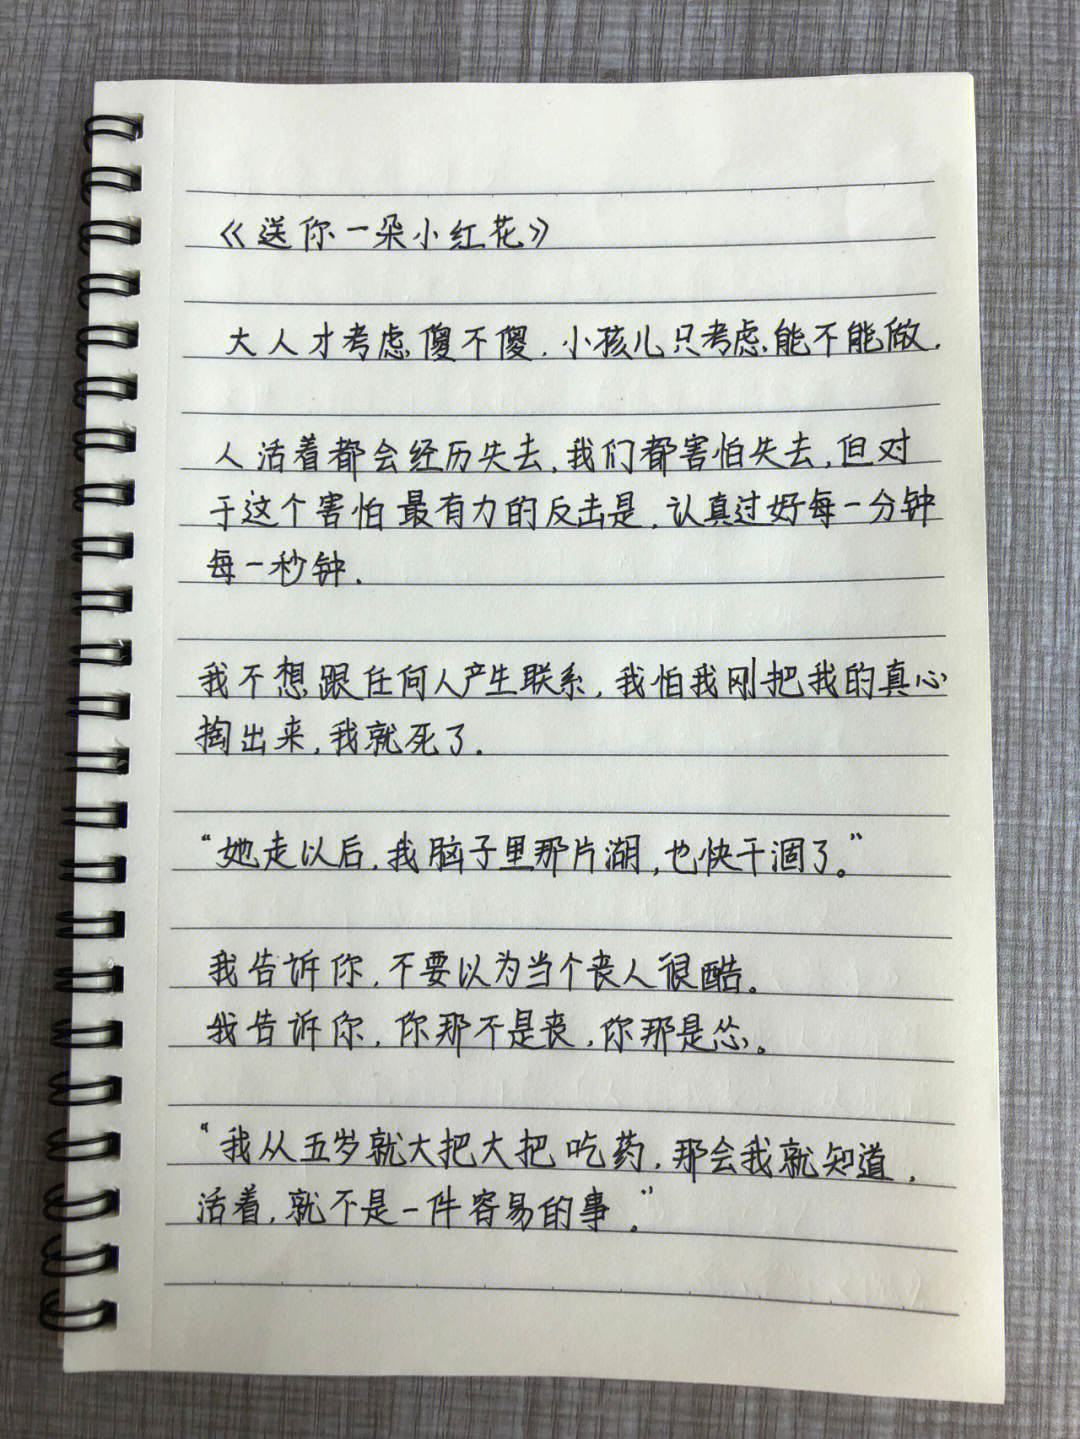 《送你一朵小红花》
大人才考虑傻不傻.小孩儿只考虑能不能做.
人活着都会经历失去,我们都害怕失去,但对
于这个害怕最有力的反击是,认真过好每一分钟
每一秒钟.
我不想跟任何人产生联系,我怕我刚把我的真心
掏出来,我就死了.
“她走以后,我脑子里那片湖,也快干涸了。”
我告诉你,不要以为当个丧人很酷。
我告诉你,你那不是丧,你那是怂。
“我从五岁就大把大把吃药,那会我就知道,
活着,就不是一件容易的事.”